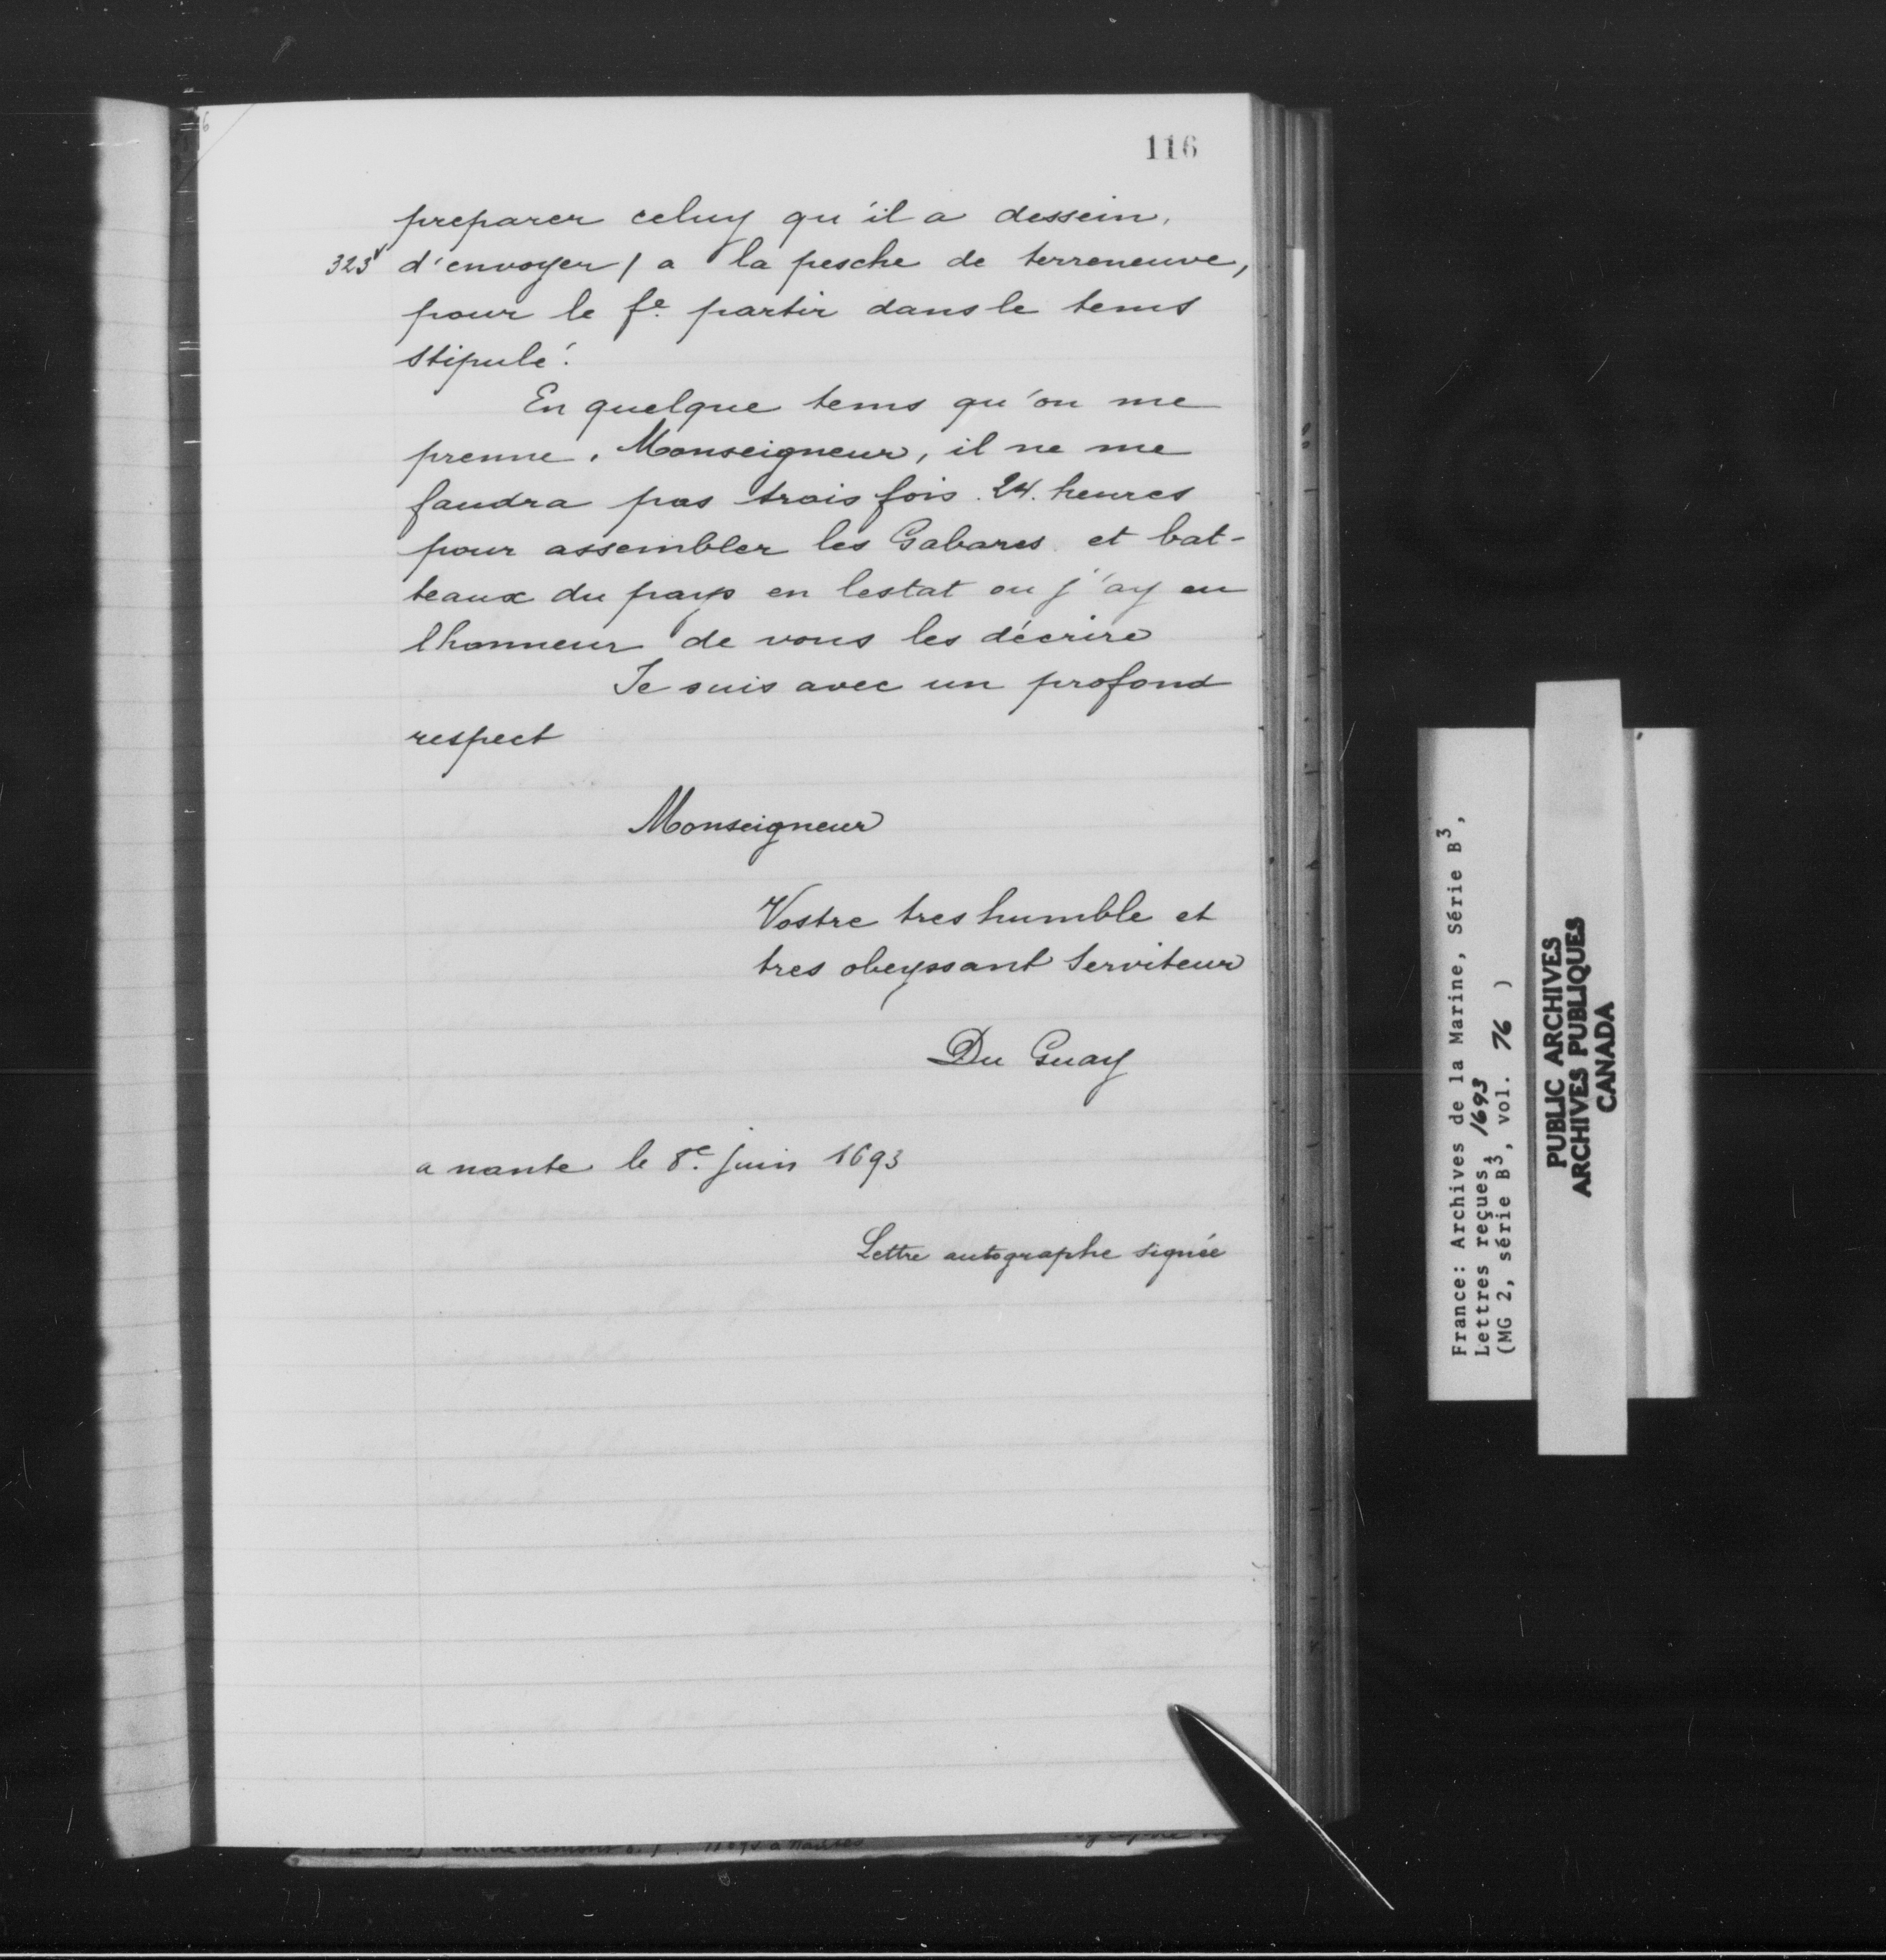 116
preparer celuy qu'il a dessein,
323v d'envoyer / a la pesche de terreneuve,
pour le fe. partir dans le tems
stipulé.
En quelque tems qu'on me
prenne, Monseigneur, il ne me
faudra pas trois fois .24. heures
pour assembler les Gabares et bat-
teaux du pays en lestat ou j'ay eu
lhonneur de vous les décrire
Je suis avec un profond
respect
Monseigneur
Vostre tres humble et
tres obeyssant Serviteur
Du Guay
a nante le 8e. juin 1693
Lettre autographe signée
France: Archives de la Marine, Série B3,
Lettres reçues, 1693
(MG 2, série B3, vol. 76 )
PUBLIC ARCHIVES
ARCHIVES PUBLIQUES
CANADA